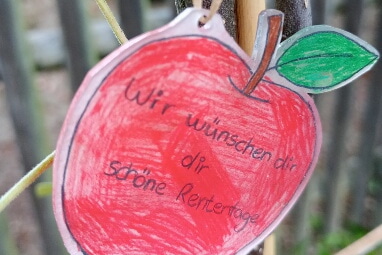 Wir wünschen dir
dir
schöne Rentertage